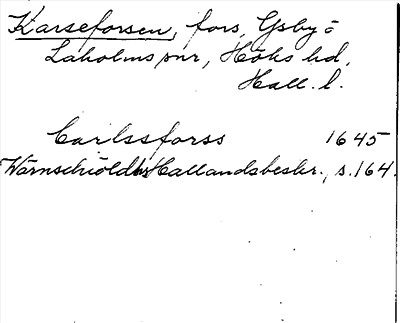 Karseforsen, fors, Ysby o
Laholms snr, Höks hd,
Hall. l.
Carlssforss 1645
Wärnschiölds Hallandsbeskr., s. 164.